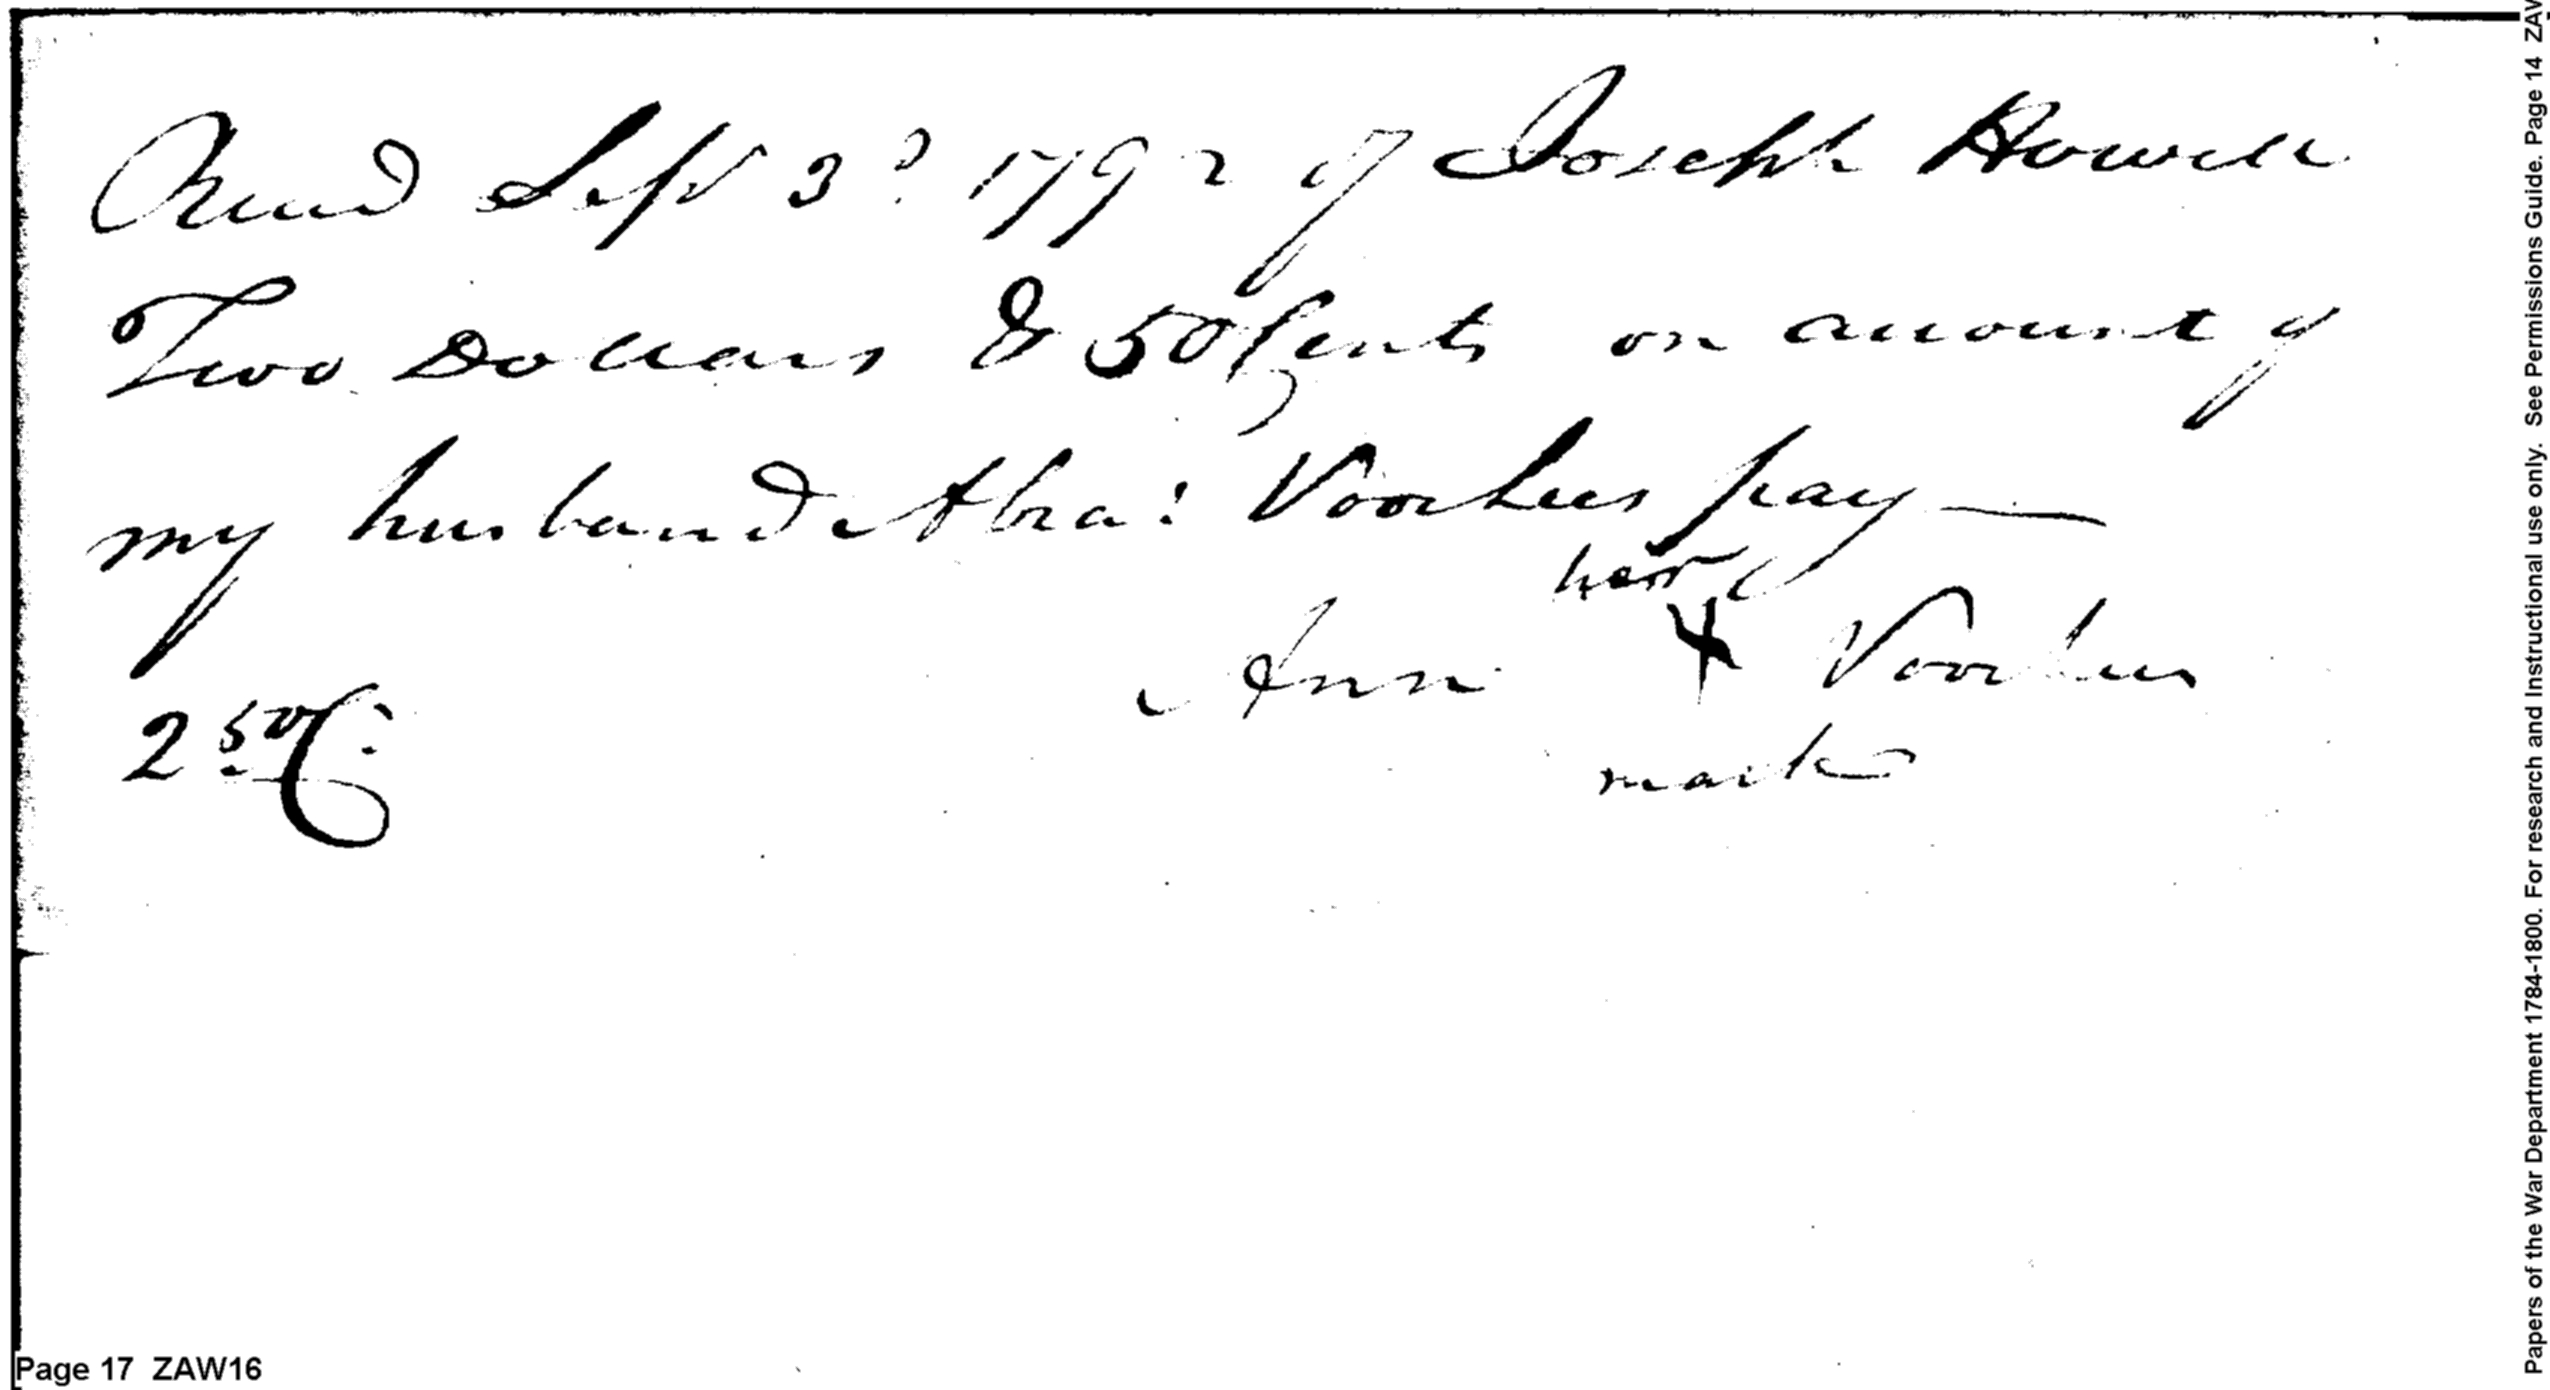 Recd Sept 3d 1792 of Joseph Howell
Two Dollars & 50 Cents on account of
my husband Abra: Voorhees pay —
her
Ann X Voorhees
mark
2 50/C:
Page 17 ZAW16
Papers of the War Department 1784-1800. For research and Instructional use only. See Permissions Guide. Page 14 ZAW